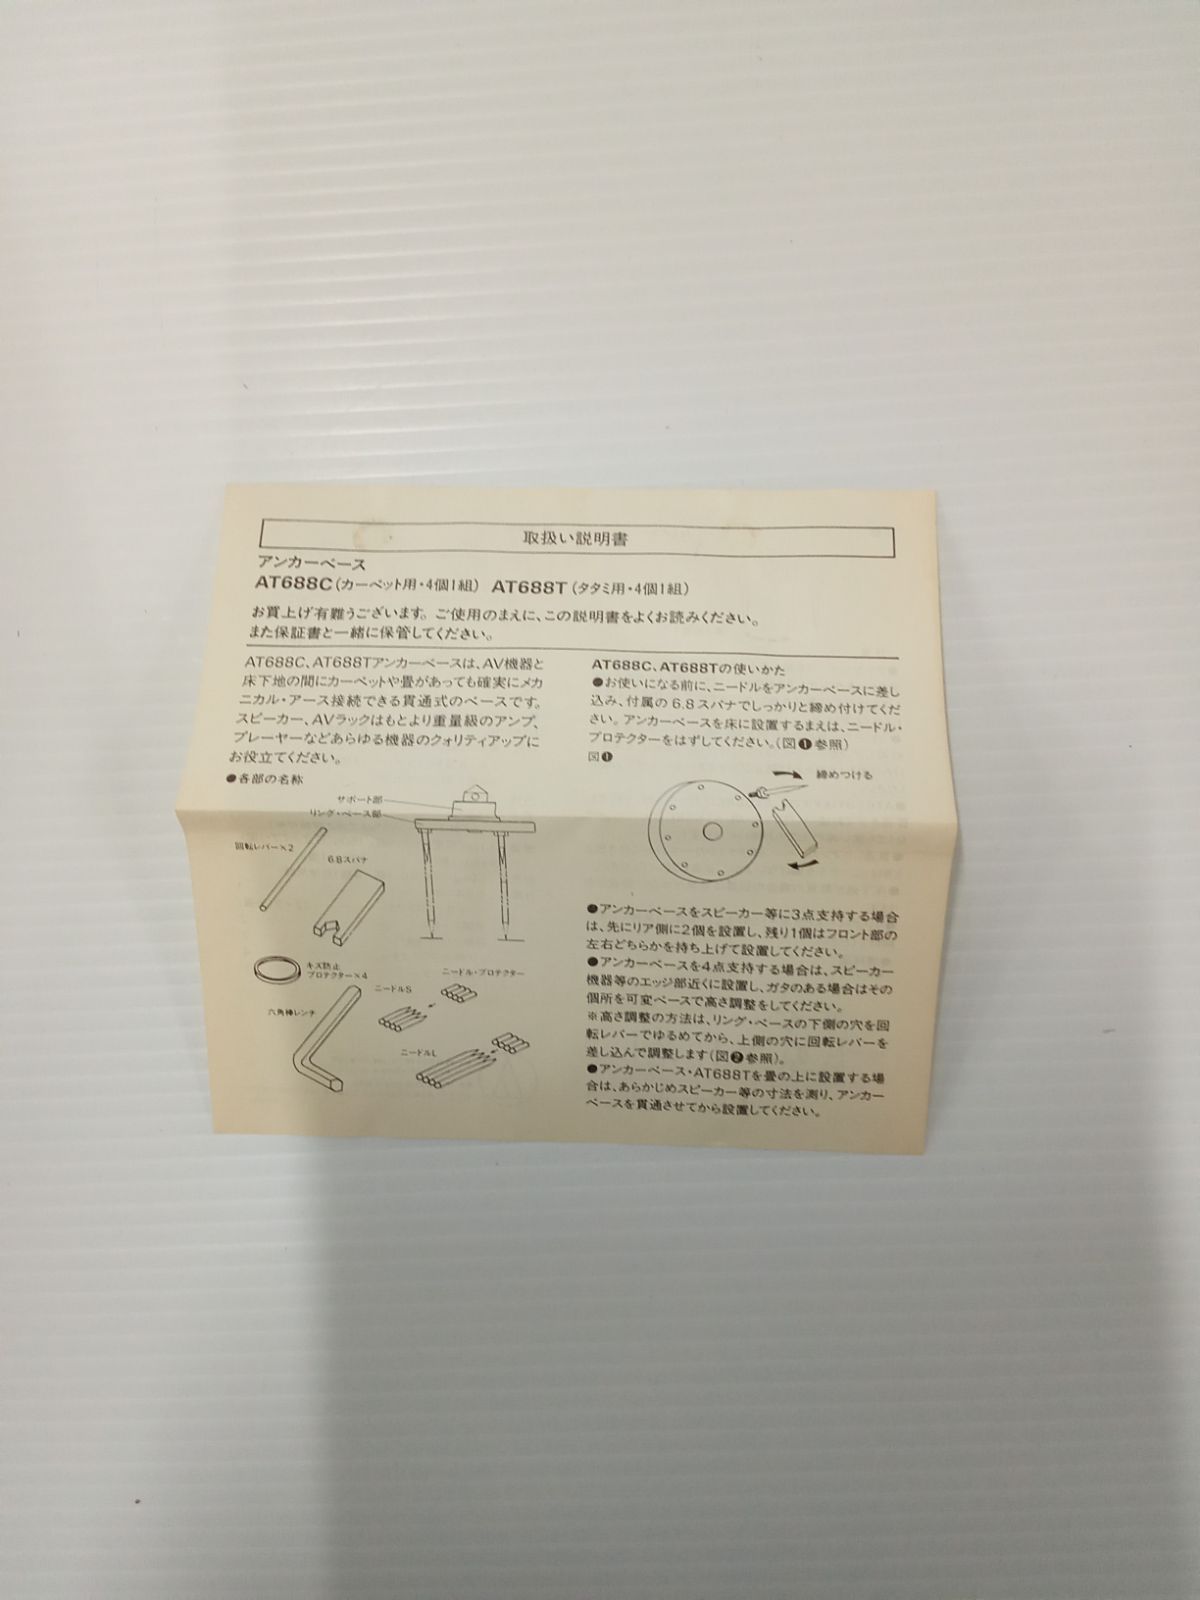 取扱い説明書
アンカーベース
AT688C(カーペット用・4個1組) AT688T(タタミ用・4個1組)
お買上げ有難うございます。ご使用のまえに、この説明書をよくお読みください。
また保証書と一緒に保管してください。
AT688C、AT688Tアンカーベースは、AV機器と
床下地の間にカーペットや畳があっても確実にメカ
ニカル・アース接続できる貫通式のベースです。
スピーカー、AVラックはもとより重量級のアンプ、
プレーヤーなどあらゆる機器のクォリティアップに
お役立てください。
●各部の名称
サポート部
リング・ベース部
回転レバー×2
6.8スパナ
キズ防止
プロテクター×4
ニードル・プロテクター
ニードルS
六角棒レンチ
ニードルL
AT688C、AT688Tの使いかた
●お使いになる前に、ニードルをアンカーベースに差し
込み、付属の6.8スパナでしっかりと締め付けてくだ
さい。アンカーベースを床に設置するまえは、ニードル・
プロテクターをはずしてください。(図❶参照)
図❶
締めつける
●アンカーベースをスピーカー等に3点支持する場合
は、先にリア側に2個を設置し、残り1個はフロント部の
左右どちらかを持ち上げて設置してください。
●アンカーベースを4点支持する場合は、スピーカー
機器等のエッジ部近くに設置し、ガタのある場合はその
個所を可変ベースで高さ調整をしてください。
※高さ調整の方法は、リング・ベースの下側の穴を回
転レバーでゆるめてから、上側の穴に回転レバーを
差し込んで調整します(図❷参照)。
●アンカーベース・AT688Tを畳の上に設置する場
合は、あらかじめスピーカー等の寸法を測り、アンカー
ベースを貫通させてから設置してください。